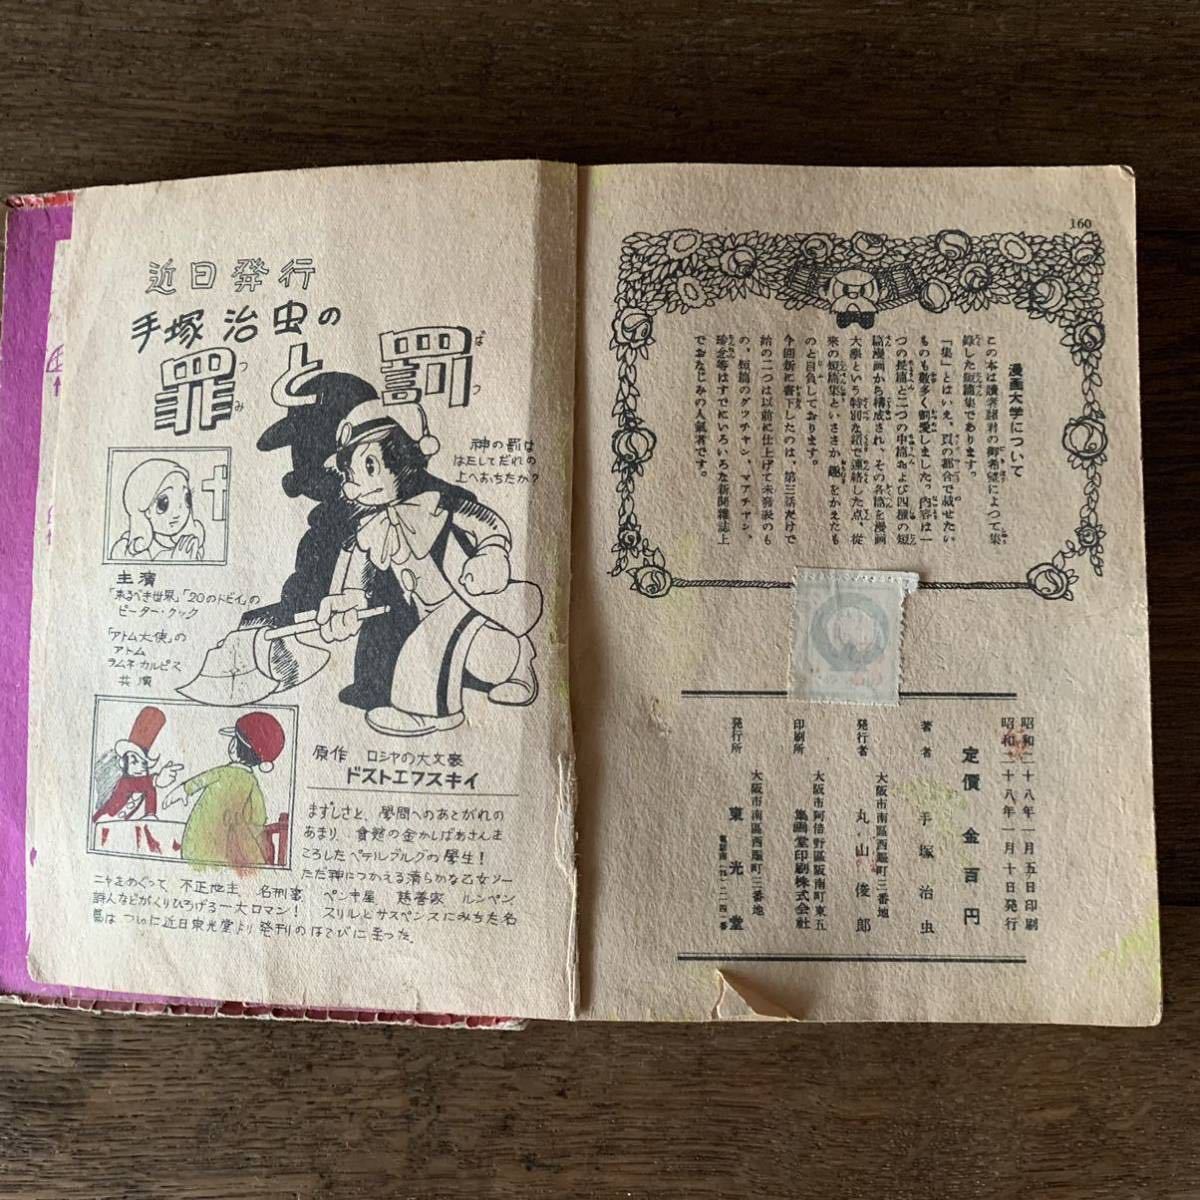 160
漫画大学について
この本は讀者諸君の御希望によつて集
録した短篇集であります。
「集」とはいえ、頁の都合で載せたい
ものも數多く割愛しました。内容は一
つの長篇と二つの中篇および四種の短
篇漫画から構成され、その各篇を漫画
大學という特別な鎖で連絡した点、從
來の短篇集といささか趣をかえたも
のと自負しております。
今回新に書下したのは、第三話だけで
給の二つは以前に仕上げて未發表のも
の、短篇のグツチヤン、マアチヤン、
珍念等はすでにいろいろな新聞雜誌上
でおなじみの人氣者です。
昭和二十八年一月五日印刷
昭和二十八年一月十日発行
定價 金百円
著者 手塚治虫
大阪市南區西賑町三番地
発行者 丸山俊郎
大阪市阿倍野區阪南町東五
印刷所 集画堂印刷株式会社
大阪市南區西賑町三番地
発行所 東光堂
近日發行
手塚治虫の
罪と罰
つみ
ばつ
神の罰は
はたしてだれの
上へおちたか?
主演
「来るべき世界」「20のトビイ」の
ピーター・クック
「アトム大使」の
アトム
ラムネ・カルピス
共演
原作 ロシヤの大文豪
ドストエフスキイ
まずしさと、學問へのあこがれの
あまり、貪慾の金かしばあさんを
ころしたペテルブルグの學生!
ただ神につかえる清らかな乙女ソー
ニャをめぐって、不正地主 名刑事 ペンキ屋 慈善家 ルンペン
詩人などがくりひろげる一大ロマン! スリルとサスペンスにみちた名
篇は ついに近日東光堂より発刊のはこびに至った。